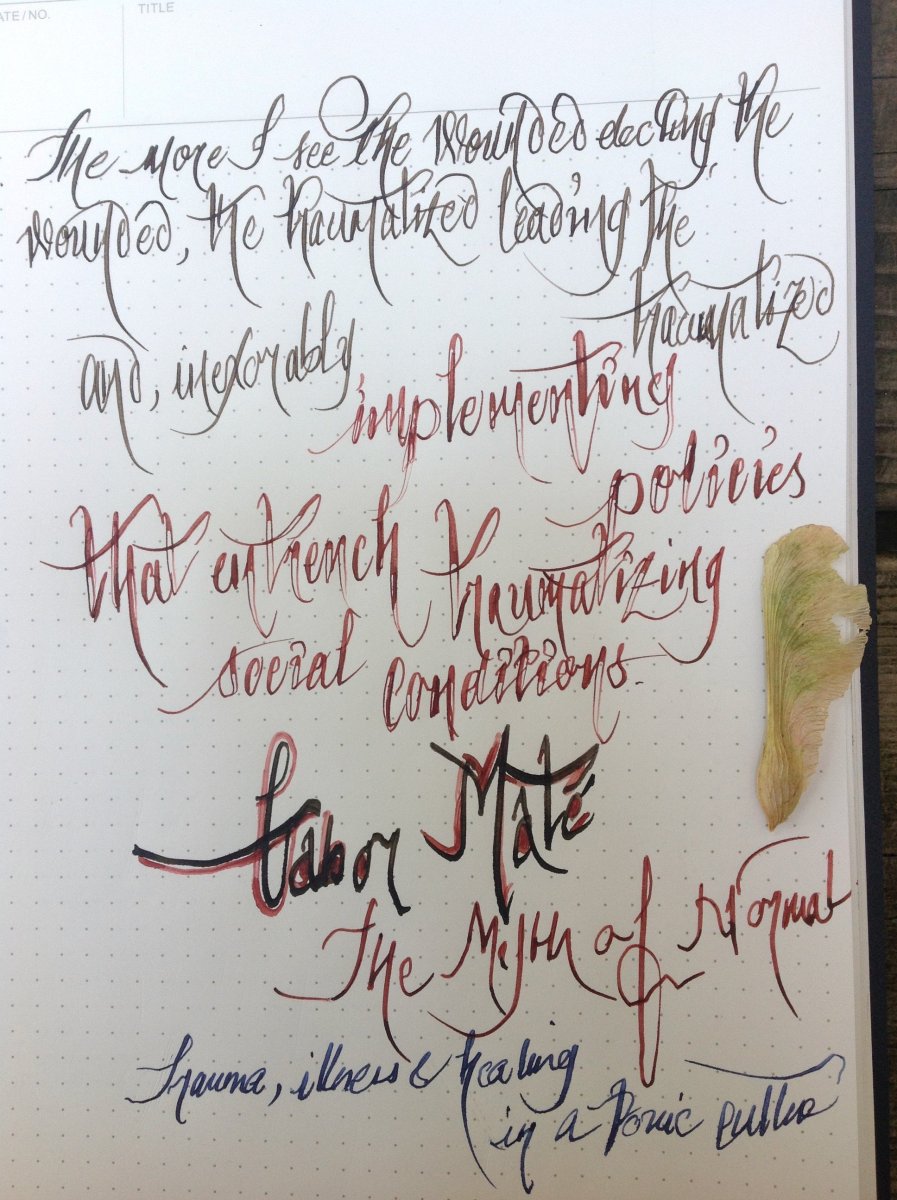 ATE/NO. TITLE
The more I see the wounded electing the
wounded, the traumatized leading the
traumatized
and, inexorably
implementing
policies
that entrench traumatizing
social conditions.
Gabor Maté
The Myth of Normal
Trauma, illness & healing
in a Toxic culture